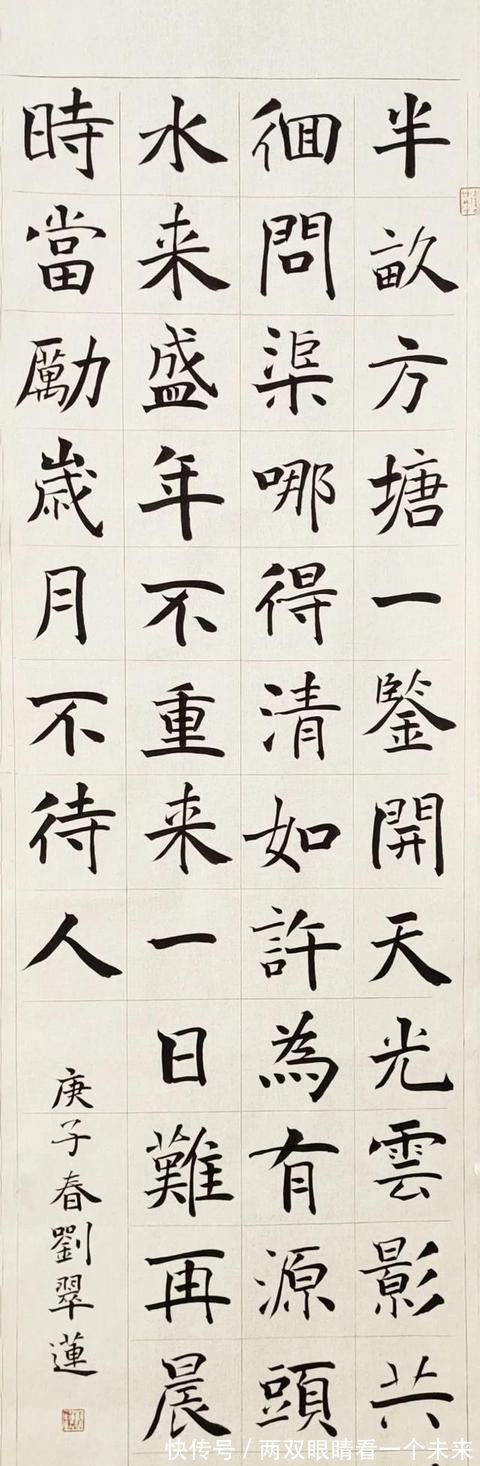 半畒方塘一鍳開天光雲影共
徊問渠哪得清如許為有源頭
水来盛年不重来一日難再晨
時當勵歲月不待人
庚子春劉翠蓮
快传号 / 两双眼睛看一个未来